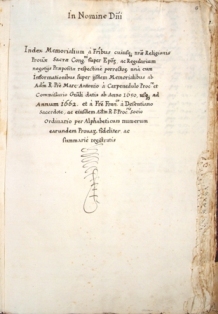 In Nomine Dñi
Index Memorialium à Fribus cuiusq₃ nrã Religionis
Provĩa Sacra Cong.ⁿⁱ super Epõs, ac Regularium
negotijs Præposita respectivè porrectoȝ unà cum
Informationibus super ijsdem Memorialibus ab
Adm R. P̃re Marc' Antonio à Carpenedulo Proc.ʳᵉ et
Commissario Gñali datis ab Anno 1650. usq₃ ad
Annum 1662. et à Frẽ Fran.ᶜᵒ à
Sacerdote, ac eiusdem Adm R. P. Proc.ʳⁱˢ Socio
Ordinatis per Alphabeticum numerum
earundem Provaȝ. fideliter ac
summariè registratis